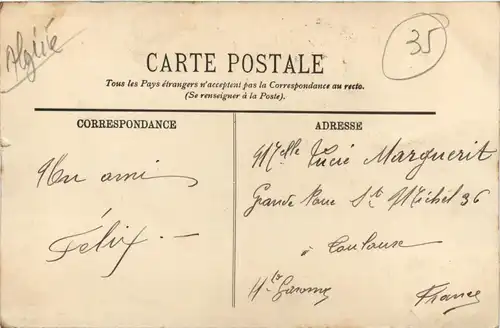 Algérie
35
CARTE POSTALE
Tous les Pays étrangers n'acceptent pas la Correspondance au recto.
(Se renseigner à la Poste).
CORRESPONDANCE
Un ami
Félix. —
ADRESSE
Melle Lucie Marguerit
Grande Rue St Michel 36
à Toulouse
Hte Garonne
France